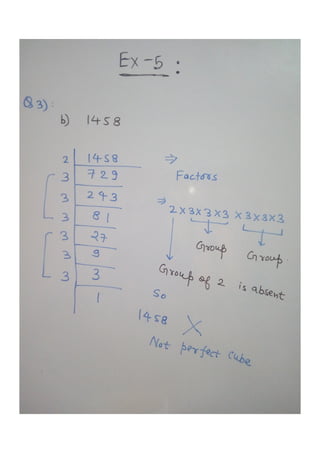 Ex-5 :
Q3) :
b) 1458
2 | 1458
3 | 729
3 | 243
3 | 81
3 | 27
3 | 9
3 | 3
1
⇒ Factors
⇒ 2×3×3×3 × 3×3×3
Group Group
Group of 2 is absent
So
1458 ×
Not perfect cube